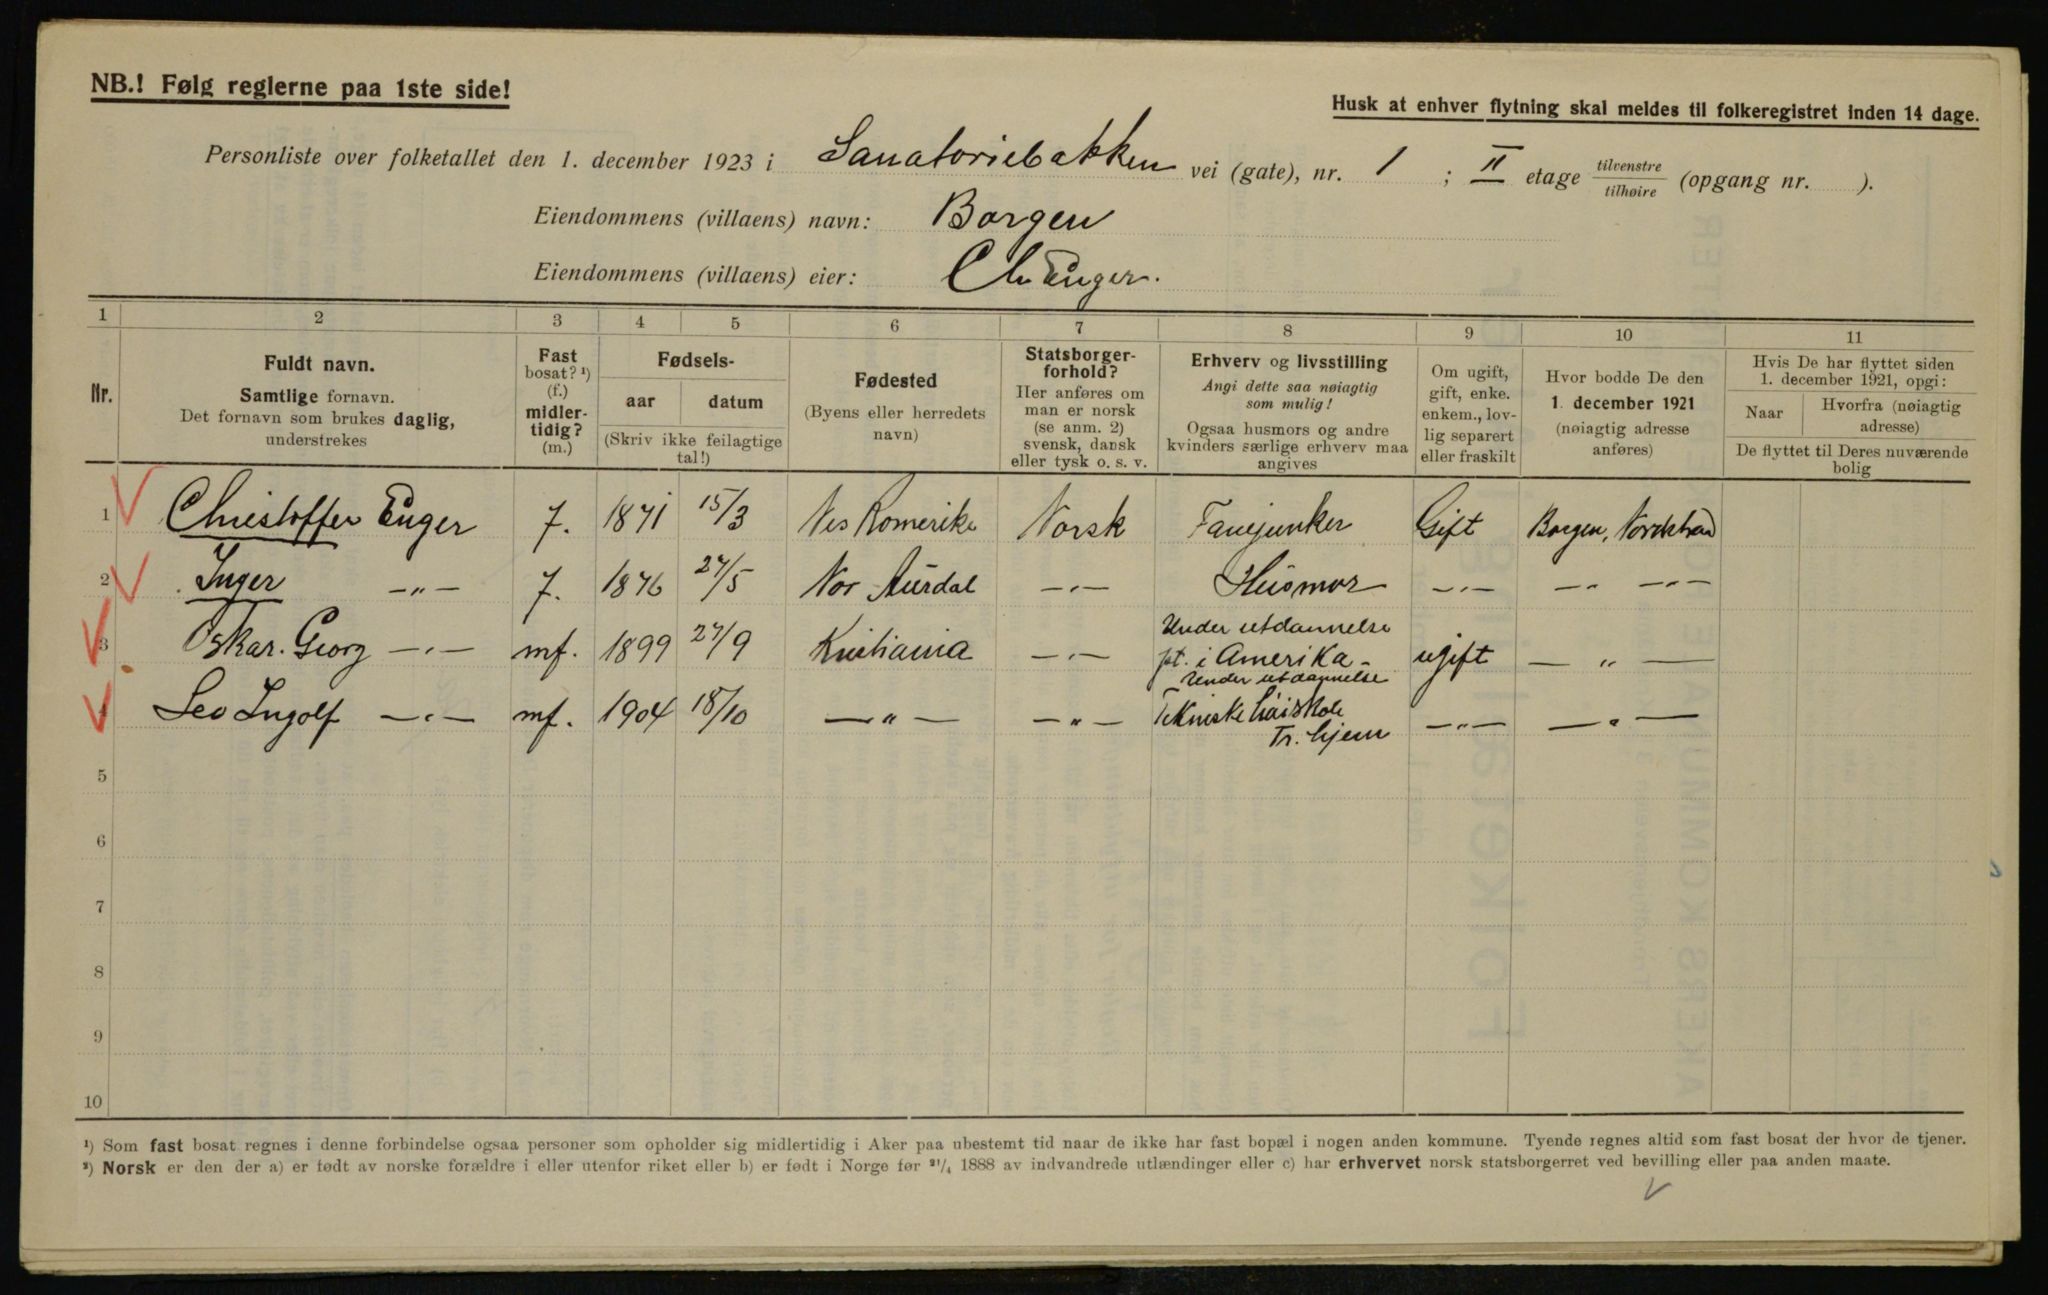 NB.! Følg reglerne paa 1ste side!
Husk at enhver flytning skal meldes til folkeregistret inden 14 dage.
Personliste over folketallet den 1. december 1923 i Sanatoriebakken vei (gate), nr. 1 ; II etage tilvenstre/tilhøire (opgang nr. ).
Eiendommens (villaens) navn: Borgen
Eiendommens (villaens) eier: Chr Enger.
1 2 3 4 5 6 7 8 9 10 11
Nr.
Fuldt navn.
Samtlige fornavn.
Det fornavn som brukes daglig,
understrekes
Fast
bosat? ¹)
(f.)
midler-
tidig?
(m.)
Fødsels-
aar datum
(Skriv ikke feilagtige
tal!)
Fødested
(Byens eller herredets
navn)
Statsborger-
forhold?
Her anføres om
man er norsk
(se anm. 2)
svensk, dansk
eller tysk o. s. v.
Erhverv og livsstilling
Angi dette saa nøiagtig
som mulig!
Ogsaa husmors og andre
kvinders særlige erhverv maa
angives
Om ugift,
gift, enke.
enkem., lov-
lig separert
eller fraskilt
Hvor bodde De den
1. december 1921
(nøiagtig adresse
anføres)
Hvis De har flyttet siden
1. december 1921, opgi:
Naar
Hvorfra (nøiagtig
adresse)
De flyttet til Deres nuværende
bolig
1 Christoffer Enger f. 1871 15/3 Nes Romerike Norsk Fanejunker Gift Borgen, Nordstrand
2 Inger —„— f. 1876 27/5 Nor Aurdal —„— Husmor —„— —„— —„—
3 Oskar. Georg —„— mf. 1899 27/9 Kristiania —„— Under utdannelse
pt. i Amerika - ugift —„—
4 Leo Ingolf —„— mf. 1904 18/10 —„— —„— Under utdannelse
Tekniske Høiskole
Tr. hjem —„— —„—
5
6
7
8
9
10
¹) Som fast bosat regnes i denne forbindelse ogsaa personer som opholder sig midlertidig i Aker paa ubestemt tid naar de ikke har fast bopæl i nogen anden kommune. Tyende regnes altid som fast bosat der hvor de tjener.
²) Norsk er den der a) er født av norske forældre i eller utenfor riket eller b) er født i Norge før ²¹/₄ 1888 av indvandrede utlændinger eller c) har erhvervet norsk statsborgerret ved bevilling eller paa anden maate.